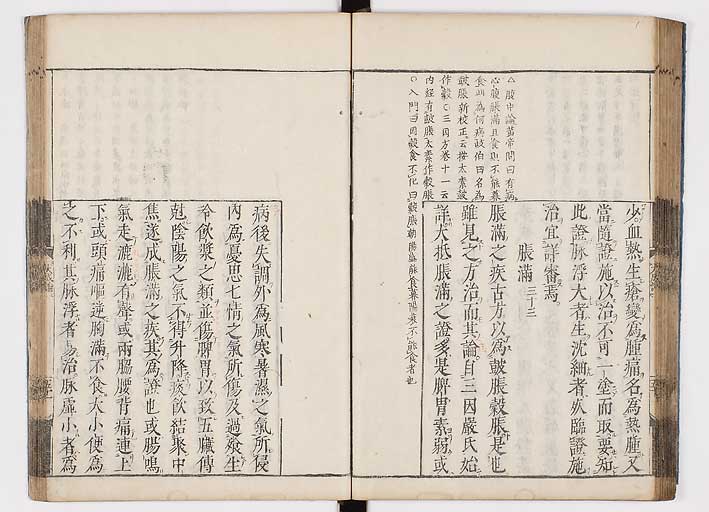 △腹中論黄帝問曰有病
心腹脹滿且食則不能暮
食此為何病岐伯曰名為
鼓脹新校正云按太素鼓
作穀○三因方巻十一云
内経有鼓脹太素作穀脹
○入門曰因穀食不化曰穀脹朝陽盛能食暮陽衰不能食者也
少血熱生瘡變為腫痛名為熱腫又
當隨證施以治不可一塗而取要知
此證脉浮大者生沈細者灰臨證施
治宜詳審焉
脹滿 三十三
脹滿之疾古方以為鼓脹穀脹是也
雖見之方治而其論自三因嚴氏始
詳大抵脹滿之證多是脾胃素弱或
病後失調外為風寒暑濕之氣所侵
内為憂思七情之氣所傷及過飡生
冷飲漿之類並傷脾胃以致五臓傳
尅陰陽之氣不得升降痰飲結聚中
焦遂成脹滿之疾其為證也或腸鳴
氣走漉漉有聲或兩脇腰背痛連上
下或頭痛嘔逆胸滿不食大小便為
之不利其脉浮者易治脉虚小者為